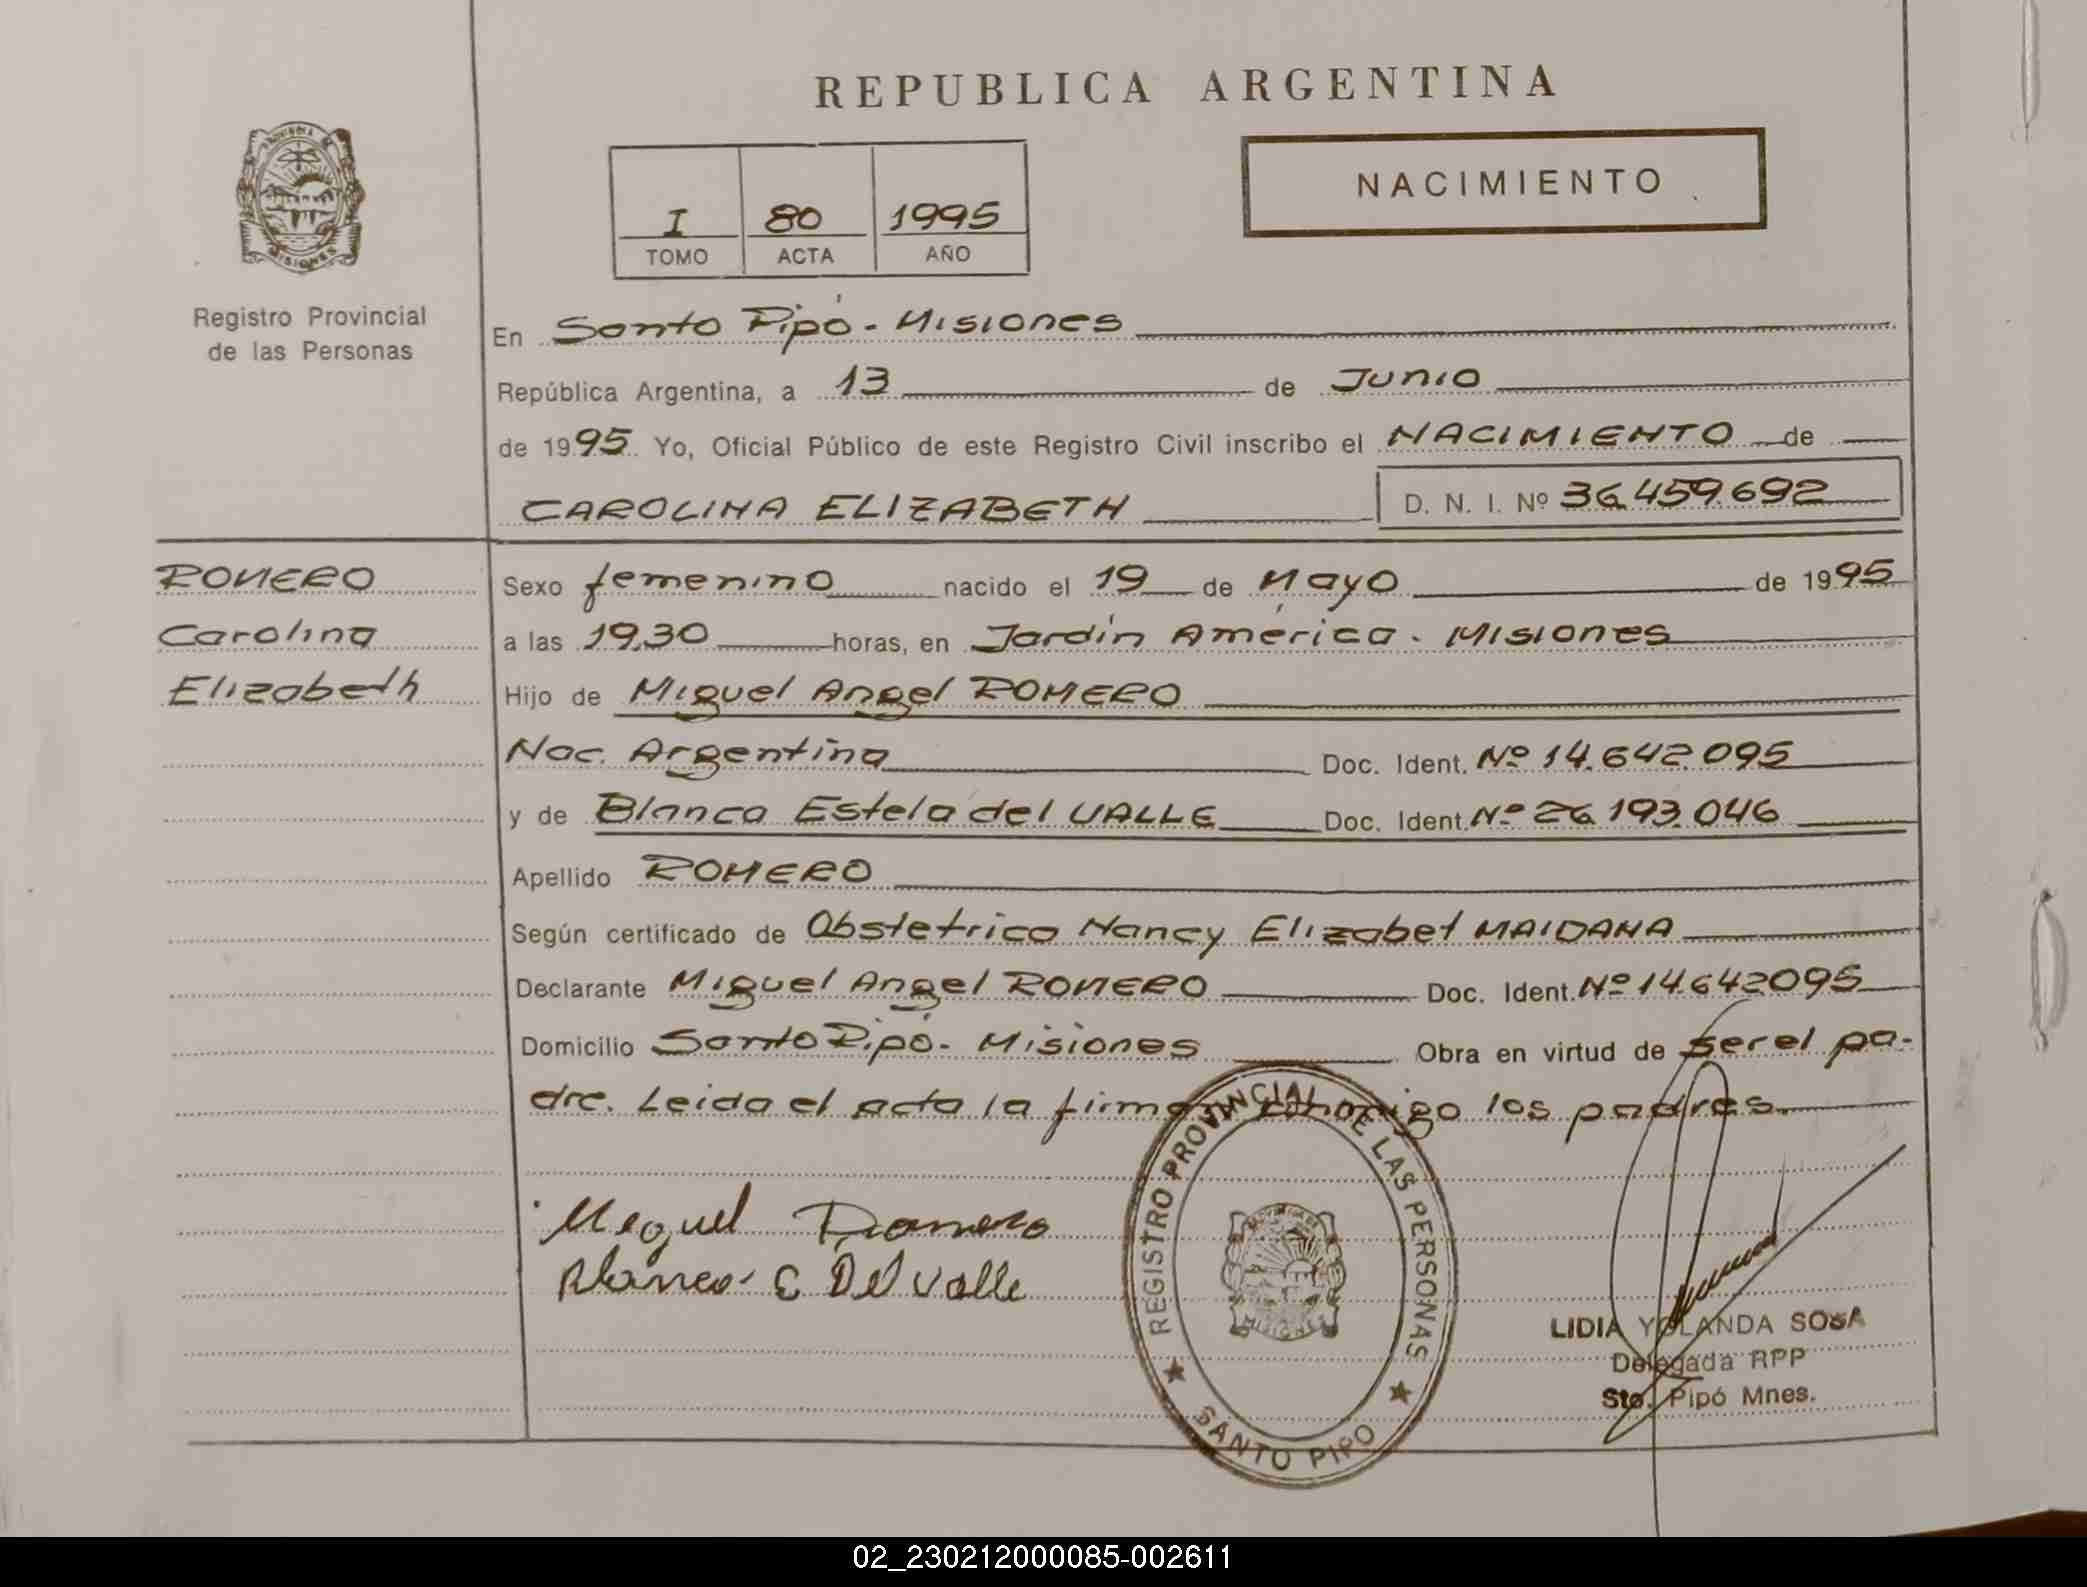 REPUBLICA ARGENTINA
NACIMIENTO
I 80 1995
TOMO ACTA AÑO
PROVINCIA DE
MISIONES
Registro Provincial
de las Personas
En Santo Pipó - Misiones
República Argentina, a 13 de Junio
de 1995. Yo, Oficial Público de este Registro Civil inscribo el NACIMIENTO de
CAROLINA ELIZABETH D. N. I. Nº 36.459.692
ROMERO
Carolina
Elizabeth
Sexo femenino nacido el 19 de Mayo de 1995
a las 19,30 horas, en Jardín América - Misiones
Hijo de Miguel Angel ROMERO
Nac. Argentina Doc. Ident. Nº 14.642.095
y de Blanca Estela del VALLE Doc. Ident. Nº 26.193.046
Apellido ROMERO
Según certificado de Obstetrica Nancy Elizabet MAIDANA
Declarante Miguel Angel ROMERO Doc. Ident. Nº 14.642095
Domicilio Santo Pipó - Misiones Obra en virtud de ser el pa-
dre. Leida el acta la firman conmigo los padres.
Miguel Romero
Blanca E Del Valle
REGISTRO PROVINCIAL DE LAS PERSONAS
SANTO PIPO
MISIONES
LIDIA YOLANDA SOSA
Delegada RPP
Sto. Pipó Mnes.
02_230212000085-002611